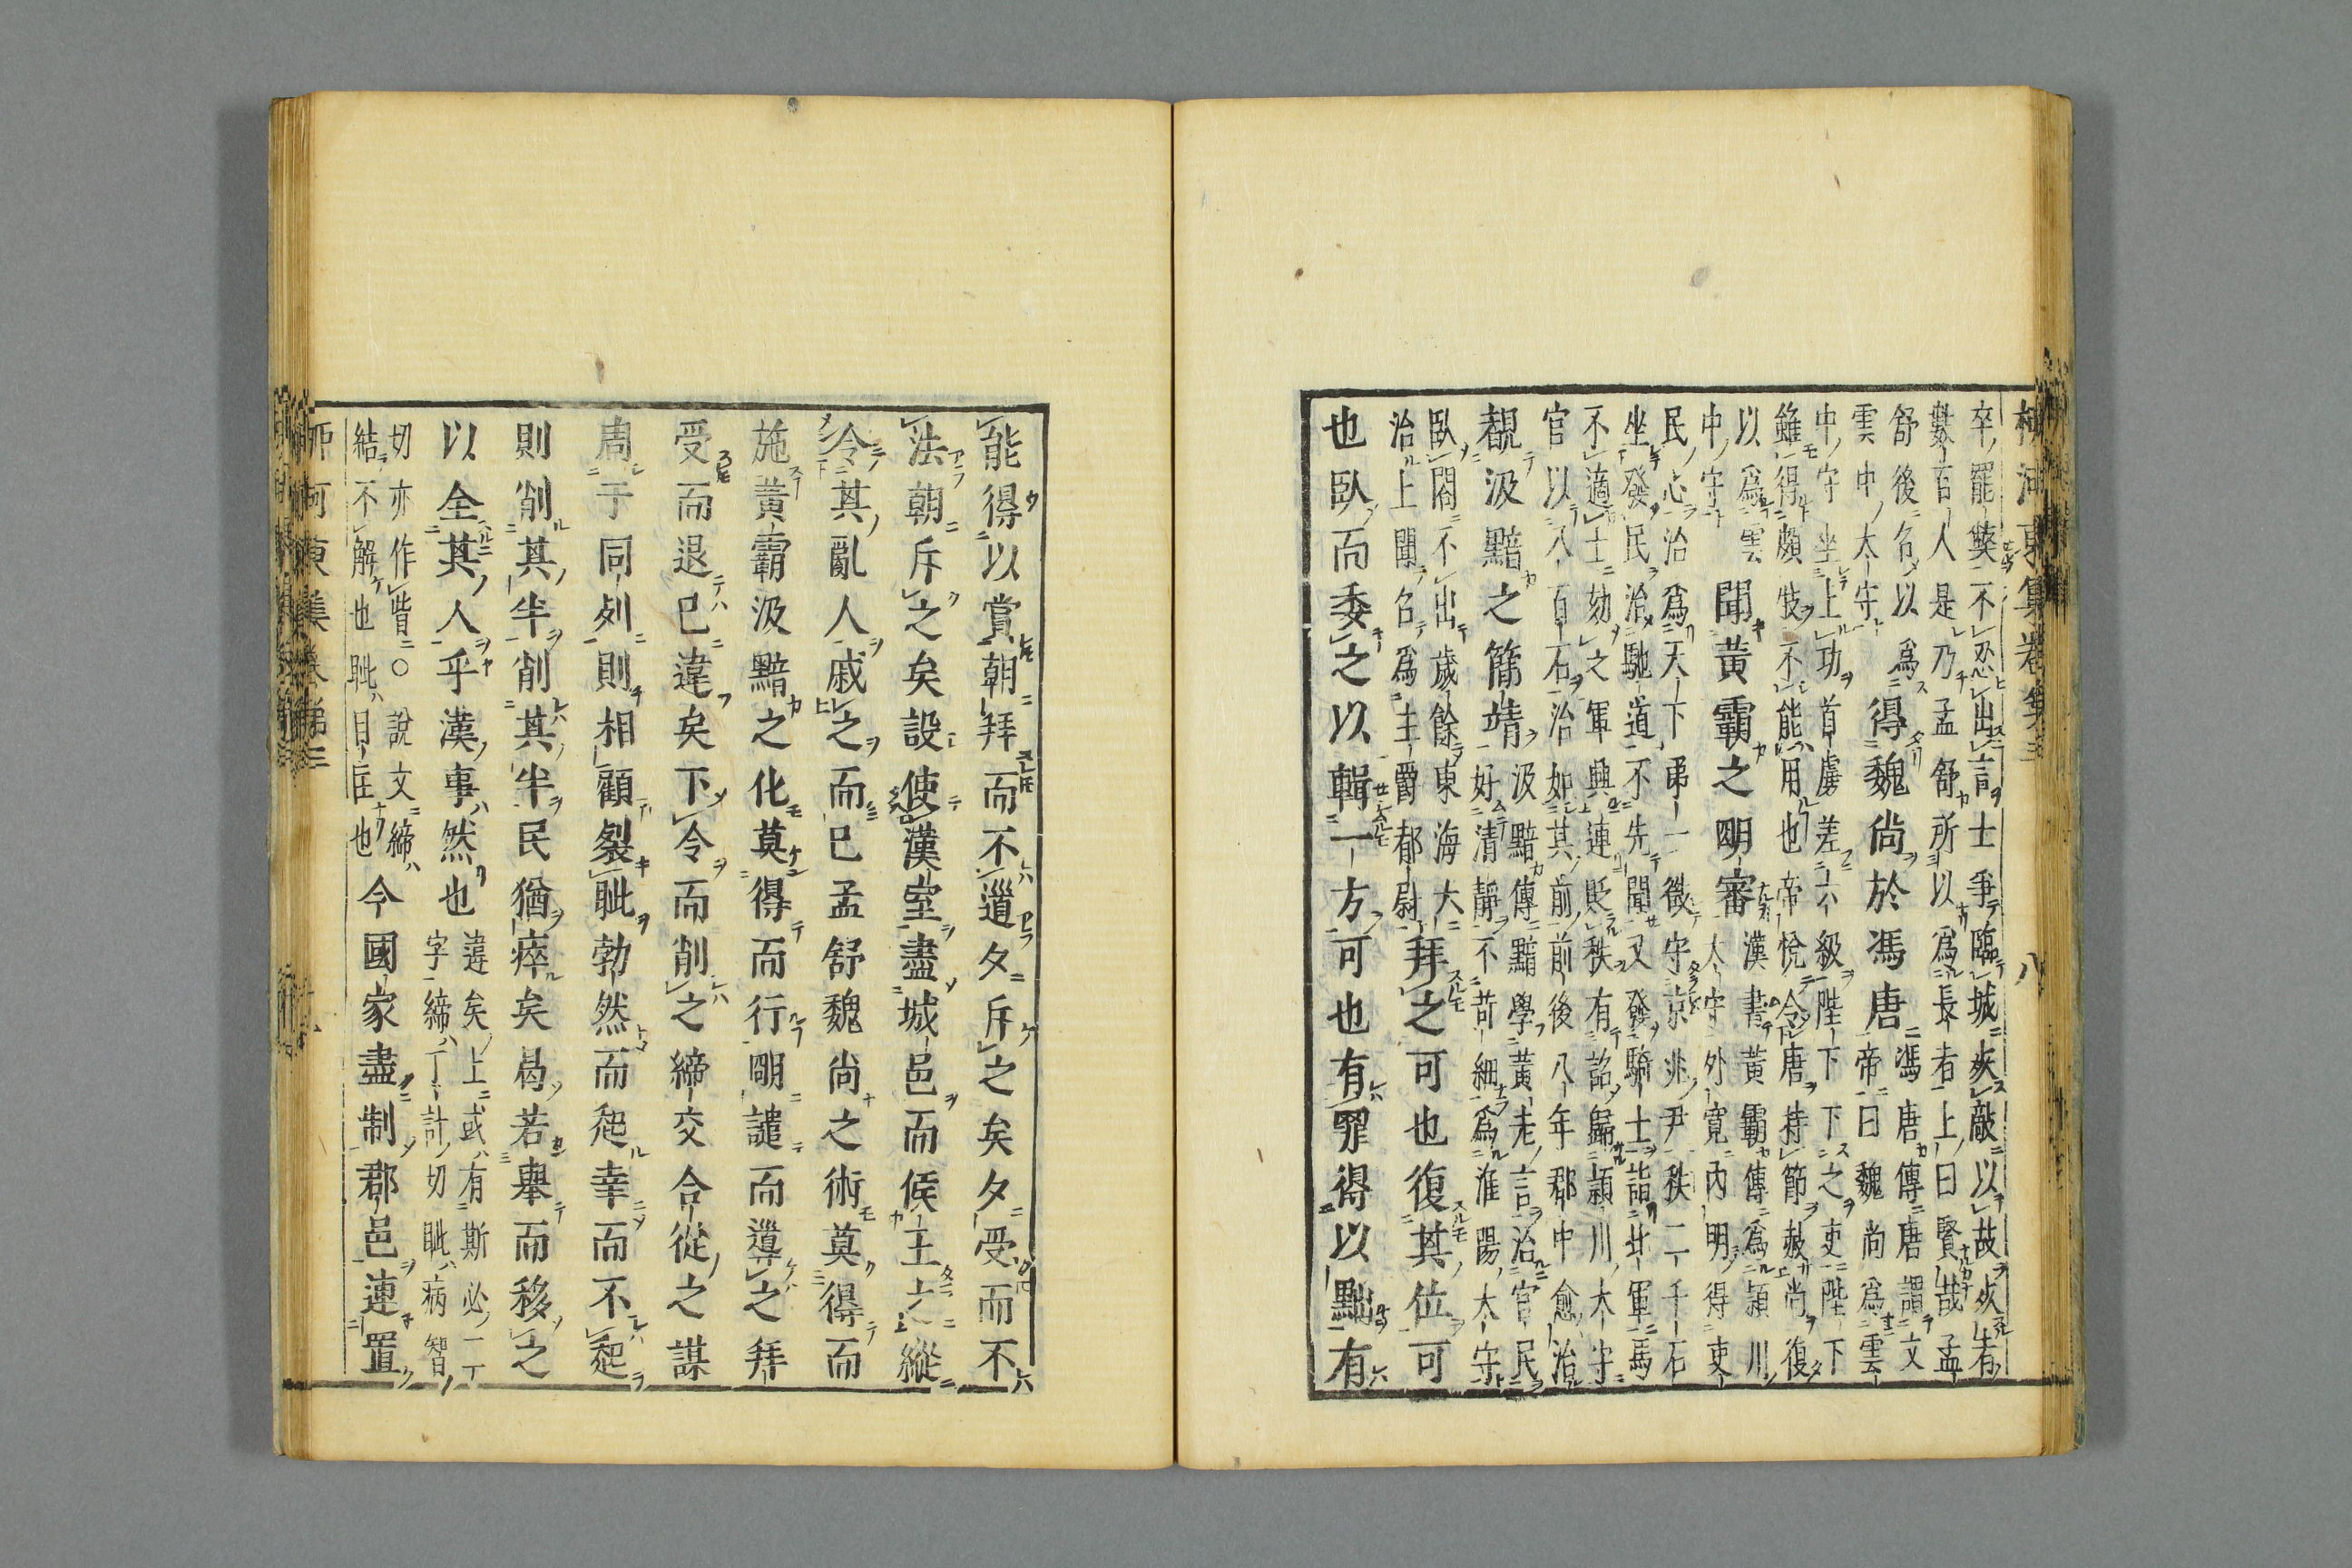 柳河東集卷第三　八
卒罷獘不忍出言士爭臨城疾敵以故疾者
數百人是乃孟舒所以爲長者上曰賢哉孟
舒後名以爲
雲中太守
得魏尚於馮唐
馮唐傳唐謂文
帝曰魏尚爲雲
中守坐上功首虜差六級陛下下之吏陛下
雖得頗牧不能用也帝悅令唐持節赦尚復
以爲雲
中守
聞黃霸之明審
漢書黃霸傳爲頴川
太守外寛內明得吏
民心治爲天下第一徵守京兆尹秩二千石
坐發民治馳道不先聞又發騎士詣北軍馬
不適士劾之軍興連貶秩有詔歸頴川太守
官以八百石治如其前前後八年郡中愈治
覩汲黯之簡靖
汲黯傳黯學黃老言治官民
好清靜不苛細爲淮陽太守
臥閤不出歲餘東海大
治上聞召爲主爵都尉
拜之可也復其位可
也臥而委之以輯一方可也有罪得以黜有
能得以賞朝拜而不道夕斥之矣夕受而不
法朝斥之矣設使漢室盡城邑而侯王之縱
令其亂人戚之而已孟舒魏尚之術莫得而
施黃霸汲黯之化莫得而行明譴而導之拜
受而退已違矣下令而削之締交合從之謀
周于同列則相顧裂眦勃然而起幸而不起
則削其半削其半民猶瘁矣曷若舉而移之
以全其人乎漢事然也
違矣上或有斯必一丁
字締丁計切眦病智
切亦作眥○說文締
結不解也眦目厓也
今國家盡制郡邑連置
柳河東集卷第三